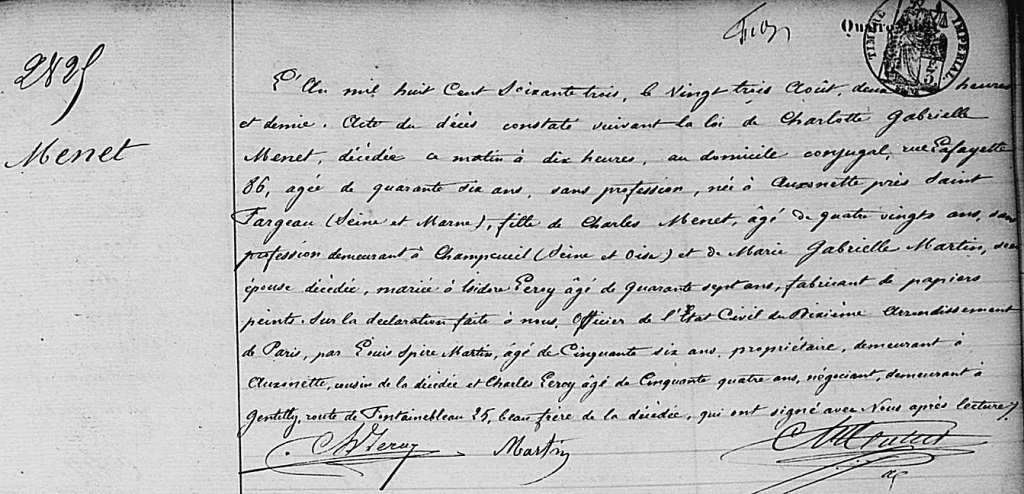 2825
Menet
Quatre
TIMBRE IMPERIAL
L'An mil huit Cent Soixante trois, le Vingt trois Août deux heures
et demie. Acte du décès constaté suivant la loi de Charlotte Gabrielle
Menet, décédée ce matin à dix heures, au domicile conjugal, rue Lafayette
86, agée de quarante six ans, sans profession, née à Auxonette près Saint
Fargeau (Seine et Marne), fille de Charles Menet, âgé de quatre vingts ans, sans
profession demeurant à Champcueil (Seine et Oise) et de Marie Gabrielle Martin, son
épouse décédée, mariée à Isidore Leroy âgé de quarante sept ans, fabricant de papiers
peints. Sur la déclaration faite à nous, Officier de l'Etat Civil du Dixième Arrondissement
de Paris, par Louis Spire Martin, âgé de Cinquante six ans, propriétaire, demeurant à
Auxonette, cousin de la décédée et Charles Leroy âgé de Cinquante quatre ans, négociant, demeurant à
Gentilly, route de Fontainebleau 25, beau frère de la décédée, qui ont signé avec Nous après lecture
Ch Leroy Martin